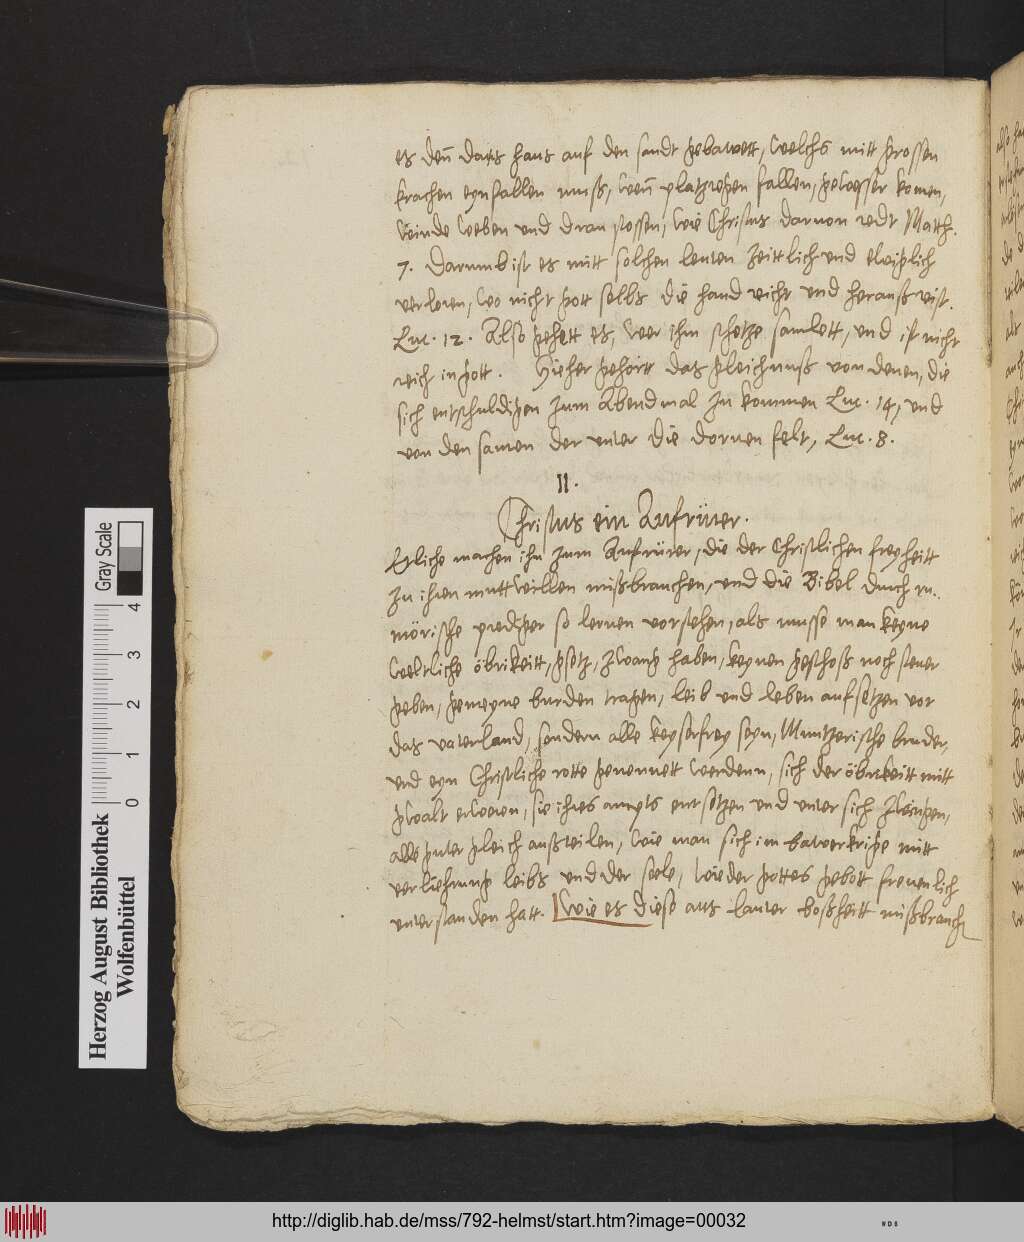 es deñ das haus auf den sandt gebawett, welchs mitt grossen
krachen eynfallen muß, weñ platzregen fallen, gewesser komen,
winde weben und dran stossen, wie Christus darvon redt Matth.
7. Darumb ist es mitt solchen leuten zeittlich und ewiglich
verloren, wo nicht gott selbs die hand reicht und heraußreist.
Luc. 12. Also gehett es, wer ihm schetze samlett, und ist nicht
reich in gott. Hieher gehört das gleichnuß von denen, die
sich entschuldigen zum Abendmal zu kommen Luc. 14, und
von den samen der unter die dornen felt, Luc. 8.
II.
Christus ein Aufrürer.
Etliche machen ihn zum Aufrürer, die der Christlichen freyheitt
zu ihren muttwillen mißbrauchen, und die Bibel durch ru-
mörische prediger so lernen vorstehen, als musse man keyne
weltliche öbrikeitt, gsetz, zwang haben, keynen geschoß noch steuer
geben, gemeyne burden tragen, leib und leben aufsetzen vor
das vaterland, sondern alle keyserfrey seyn, Muntzerische bruder,
und eyn Christliche rotte genennett werdenn, sich der öbrikeitt mitt
gwalt erweren, sie ihres ampts entsetzen und unter sich zwingen,
alle guter gleich außteilen, wie man sich im bawerkrige mitt
verliehrung leibs und der seele, wieder gottes gebott frevenlich
unterstanden hatt. Wie es diese aus lauter boßheitt mißbrauch
Herzog August Bibliothek
Wolfenbüttel
0 1 2 3 4
Gray Scale
http://diglib.hab.de/mss/792-helmst/start.htm?image=00032